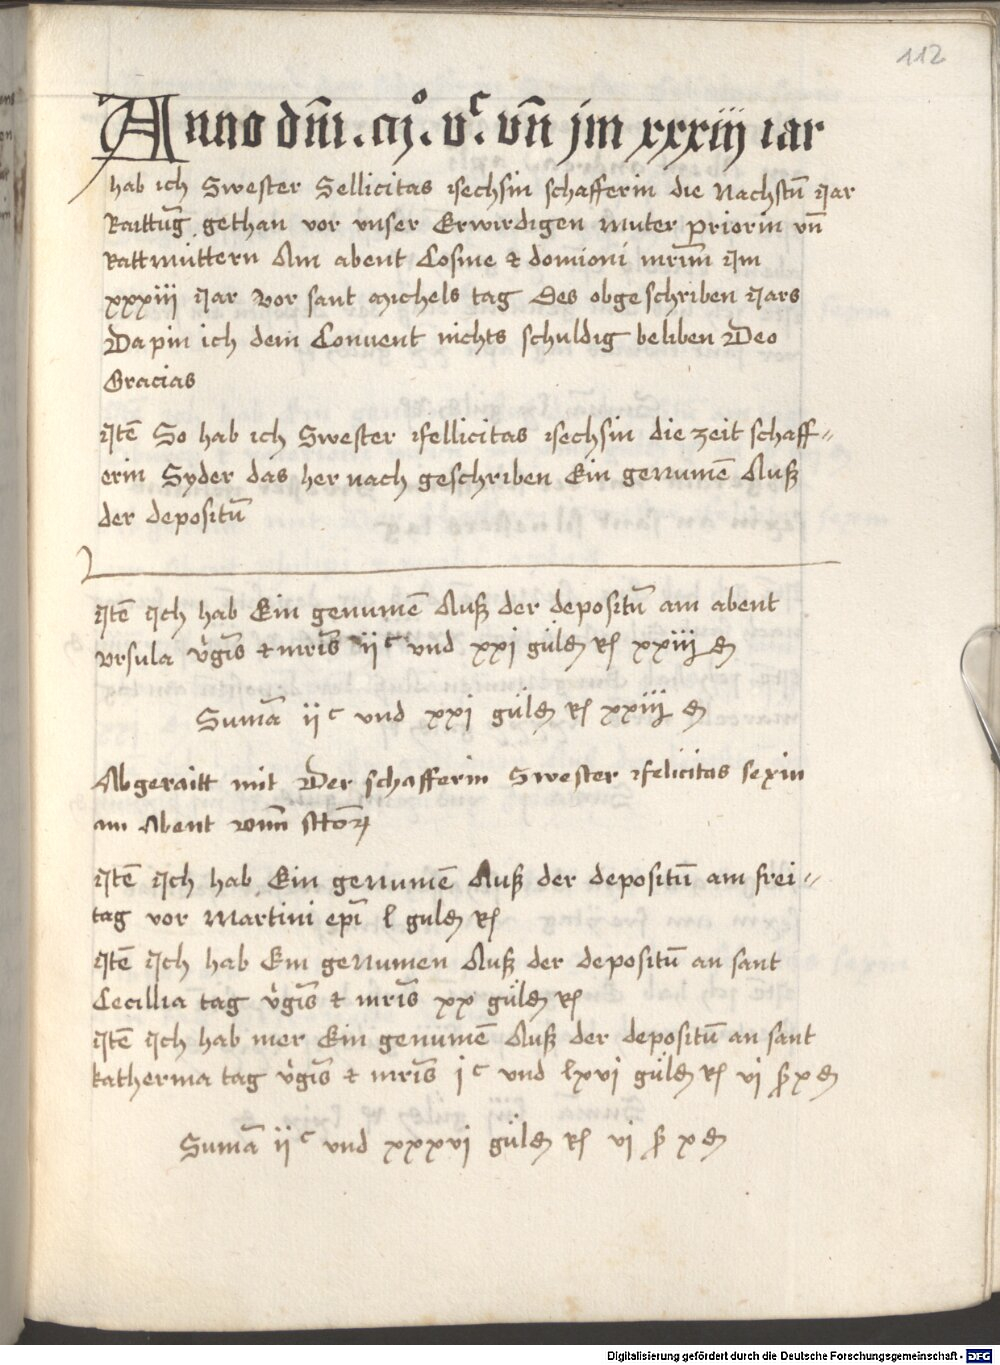 112
Anno dm̄. mͦ. vᶜ. vn̄ jm xxxiij iar
hab ich Swester Fellicitas Fechsin schafferin die Nachstū Jar
Raittūg gethan vor vnser Erwirdigen muter priorin vn̄
Rattmüttern Am abent Cosme & domioni mr̄im Jm
xxxiii Jar Vor sant michels tag Des obgeschriben Jars
Da pin ich dem Conuent nichts schuldig beliben Deo
Gracias
Jtē So hab ich Swester Fellicitas Fechsin die zeit schaff=
erin Syder das her nach geschriben Ein genumē Auß
der depositū
Jtē Jch hab Ein genumē Auß der depositū am abent
vrsula v̓gīs & mr̄is iiᶜ vnd xxi güld̄ R xxiii ₰
Sumā iiᶜ vnd xxi güld̄ R xxiii ₰
Abgeraitt mit Der schafferin Swester Felicitas sexin
am Abent
Jtē Jch hab Ein genumē Auß der depositū am frei=
tag vor Martini epī l guld̄ R
Jtē Jch hab Ein genumen Auß der depositū an sant
Cecillia tag v̓gīs & mr̄is xx güld̄ R
Jtē Jch hab mer Ein genumē Auß der depositū an sant
katherina tag v̓gīs & mr̄is jᶜ vnd lxvi güld̄ R vi ß x ₰
Sumā iiᶜ vnd xxxvi güld̄ R vi ß x ₰
Digitalisierung gefördert durch die Deutsche Forschungsgemeinschaft - DFG